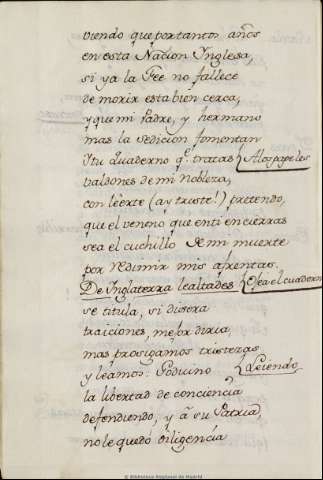 viendo que por tantos años
en esta Nacion Inglesa,
si ya la Fee no fallece
de morir esta bien cerca,
y que mi Padre, y hermano
mas la sedicion fomentan
Y tu quaderno q.e tratas { Alos papeles
baldones de mi nobleza,
con leerte (ay triste!) pretendo,
que el veneno que en ti encierras
sea el cuchillo de mi muerte
por redimir mis afrentas.
De Inglaterra lealtades { Ojea el cuaderno
se titula, si dixera
traiciones, mejor diria,
mas prosigamos tristezas
y leamos: Goduino { Leiendo
la libertad de conciencia
defendiendo, y â su Patria,
no le quedó diligencia
© Biblioteca Regional de Madrid